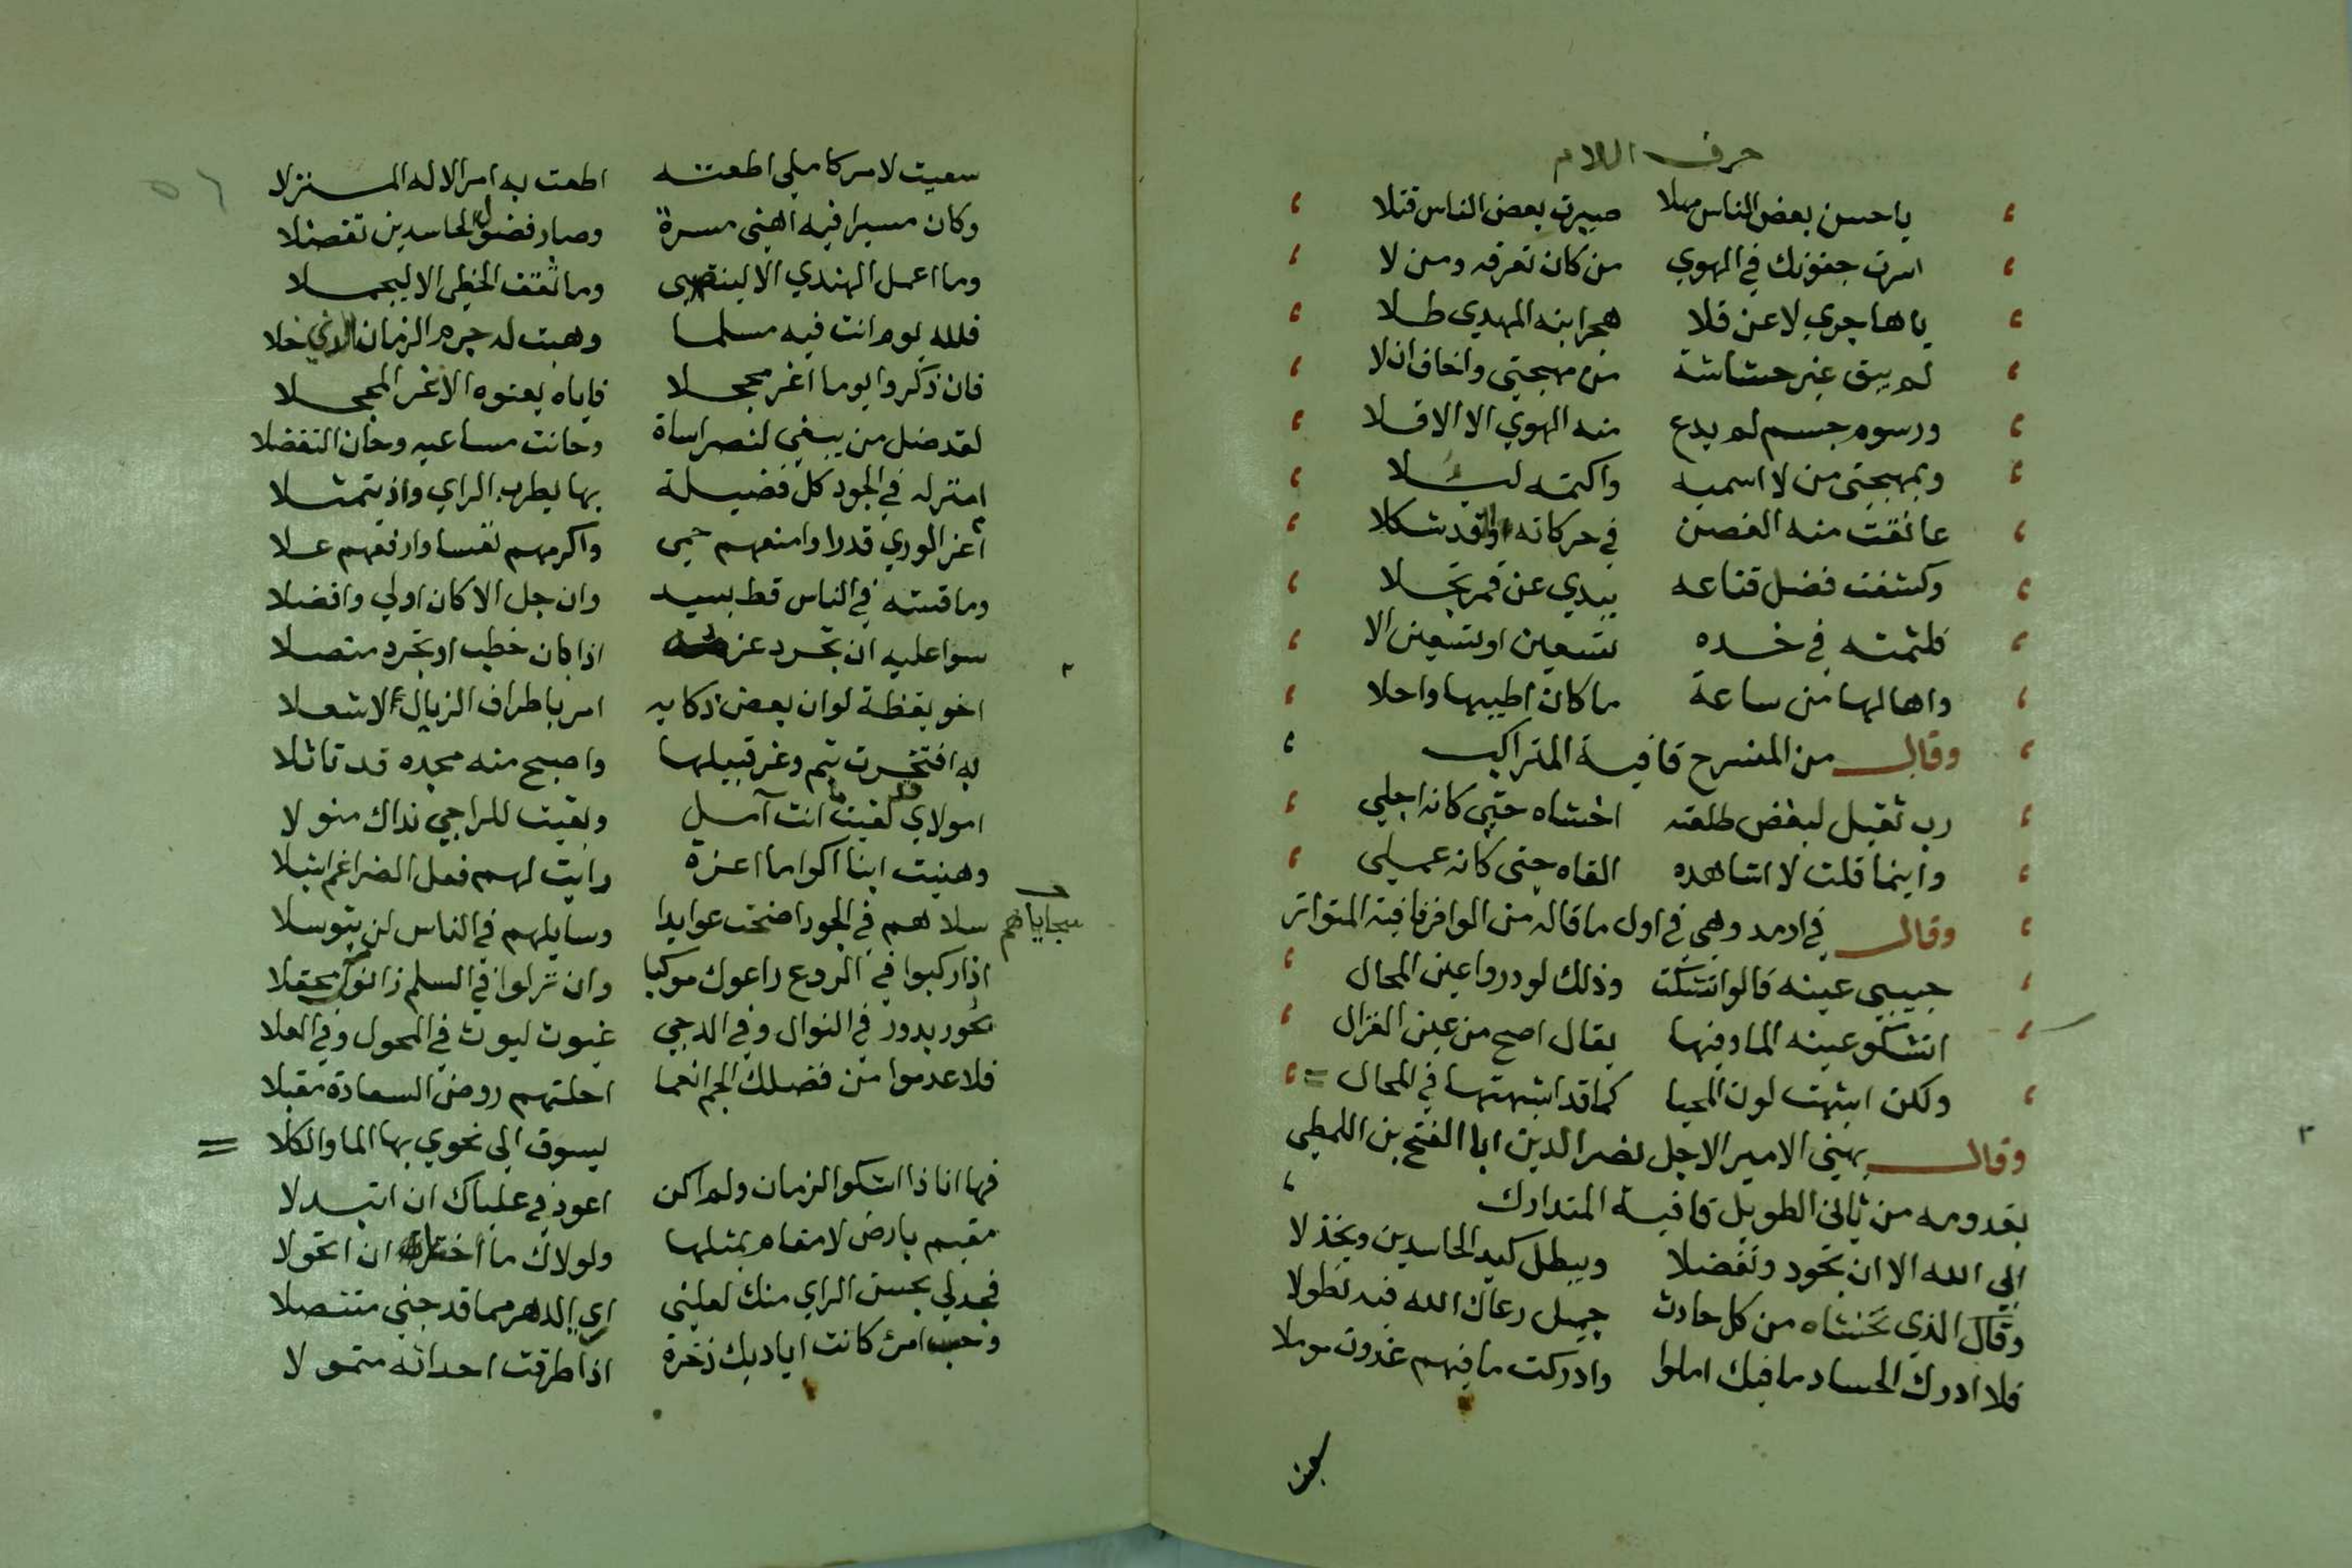 حرف اللام
ياحسن بعض الناس مهلا صيرت بعض الناس قتلا
اسرت جفونك في الهوي من كان تعرفه ومن لا
ياهاجري لاعن قلا هجرا بنه المهدي طلا
لم يبق غير حشاشة من مهجتي واخاف ان لا
ورسوم جسم لم يدع منه الهوي الا الاقلا
وبمهجتي من لا اسميه واكتمه ليلا
عانقت منه الغصن في حركاته وقد شكلا
وكشفت فضل قناعه بيدي عن قمر تجلا
فلثمته في خده تسعين او تسعين الا
واها لها من ساعة ما كان اطيبها واحلا
وقال من المنسرح قافية المتراكب
رب ثقيل لبغض طلعته اخشاه حتي كانه اجلي
واينما قلت لا اشاهده القاه حتي كانه عملي
وقال في ارمد وهي في اول ما قاله من الوافر قافية المتواتر
حبيبي عينه قالوا تشكت وذلك لو دروا عين المحال
اتشكو عينه الما وفيها يقال اصح من عين الغزال
ولكن اشبهت لون المحيا كما قد اشبهتها في المحال =
وقال يهني الامير الاجل نصر الدين ابا الفتح بن اللمطي
بقدومه من ثاني الطويل قافية المتدارك
ابي الله الا ان تجود وتفضلا ويبطل كيد الحاسدين ويخذلا
وقال الذي تخشاه من كل حادث جميل رعاك الله فيه تطولا
فلا ادرك الحساد ما فيك املوا وادركت ما فيهم غدوت موملا
سعيت لامر كاملي اطعته اطعت به امر الاله المنزلا
وكان مسيرا فيه اهني مسرة وصار فضول الحاسدين تفضلا
وما اعمل الهندي الا لينتضي وما ثقف الخطي الا ليجملا
فلله يوم انت فيه مسلما وهبت له جرم الزمان الذي خلا
فان ذكروا يوما اغر محجلا فاياه يعنوه الاغر المحجلا
لقد ضل من يبغي لنصر اساة وحانت مساعيه وخان التفضلا
امتر له في الجود كل فضيلة بها يطرب الراي واذ يتمثلا
أعز الوري قدرا وامنعهم حمي واكرمهم نفسا وارفعهم علا
وما قسته في الناس قط بسيد وان جل الا كان اولي وافضلا
سوا عليه ان تجرد عزمه اذا كان خطب او تجرد منصلا
اخو يقظة لو ان بعض ذكايه امر باطراف الزبال لا شعلا
به افتخرت تيم وعز قبيلها واصبح منه مجده قد تاثلا
امولاي لقيت ما انت آمل وبقيت للراجي نداك منولا
وهنيت ابناا كراما اعزة رايت لهم فعل الضراغم اشبلا
سجاياهم
سلاهم في الجود اضحت عوايدا وسايلهم في الناس لن يتوسلا
اذا ركبوا في الروع راعوك موكبا وان نزلوا في السلم زانوك محفلا
بحور بدور في النوال وفي الدجي غيوث ليوث في المحول وفي العلا
فلا عدموا من فضلك الجم انعما احلتهم روض السعادة مقبلا
يسوق الي نحوي بها الما والكلا =
فها انا ذا اشكوا الزمان ولم اكن اعوذ في علياك ان اتبدلا
مقيم بارض لا مقام بمثلها ولولاك ما اخترت ان اتحولا
فجد لي بحسن الراي منك لعلني اري الدهر مما قد جني متنصلا
وحسب امرئ كانت اياديك ذخرة اذا طرقت احداثه متمولا